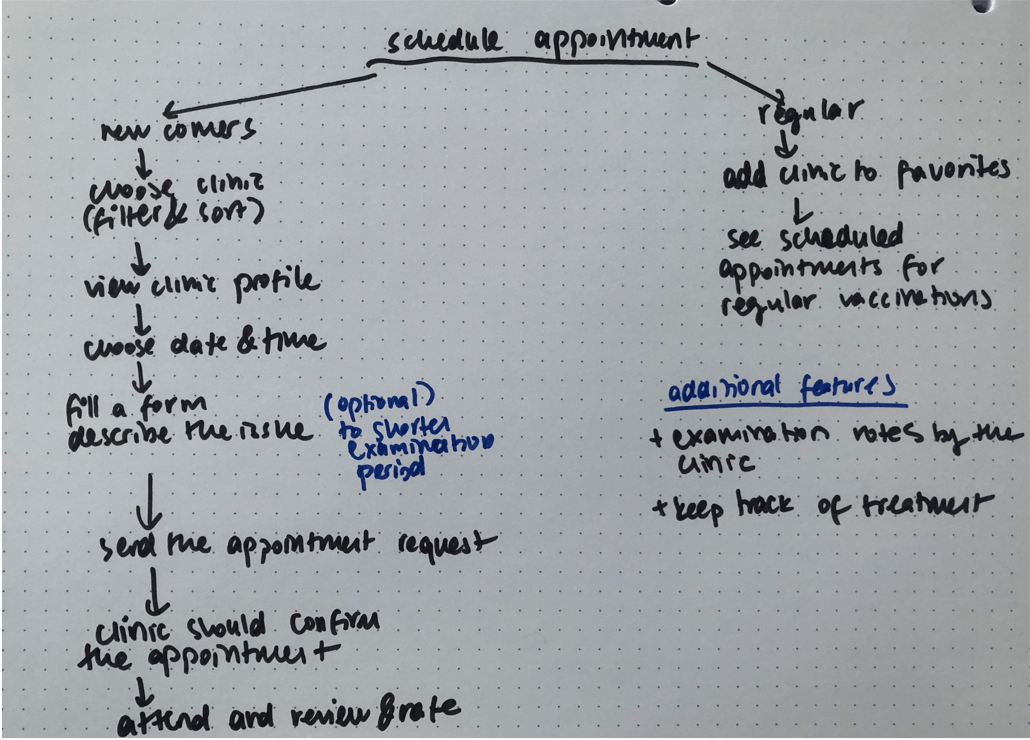 schedule appointment
new comers
choose clinic
(filter & sort)
view clinic profile
choose date & time
fill a form
describe the issue
(optional)
to shorten
examination
period
send the appointment request
clinic should confirm
the appointment
attend and review & rate
regular
add clinic to favorites
see scheduled
appointments for
regular vaccinations
additional features
+ examination notes by the
clinic
+ keep track of treatment